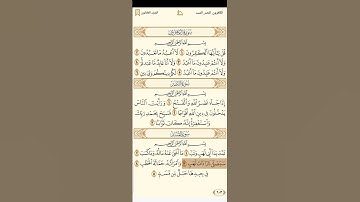 الكافرون، النصر، المسد
سورة الكافرون
بسم الله الرحمن الرحيم
قل يا أيها الكافرون ١ لا أعبد ما تعبدون ٢
ولا أنتم عابدون ما أعبد ٣ ولا أنا عابد ما عبدتم ٤
ولا أنتم عابدون ما أعبد ٥ لكم دينكم ولي دين ٦
سورة النصر
بسم الله الرحمن الرحيم
إذا جاء نصر الله والفتح ١ ورأيت الناس
يدخلون في دين الله أفواجا ٢ فسبح بحمد ربك
واستغفره إنه كان توابا ٣
سورة المسد
بسم الله الرحمن الرحيم
تبت يدا أبي لهب وتب ١ ما أغنى عنه ماله وما كسب ٢
سيصلى نارا ذات لهب ٣ وامرأته حمالة الحطب ٤
في جيدها حبل من مسد ٥
٦٠٣